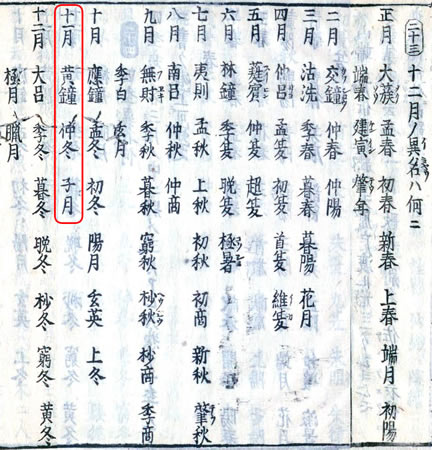 二十三 十二月ノ異名ハ何ニ
正月 大簇 孟春 新春 上春 端月 初陽
端春 建寅 肇年
二月 交鐘 仲春 仲陽
三月 沽洗 季春 暮春 暮陽 花月
四月 仲呂 孟夏 初夏 首夏 維夏
五月 蕤賓 仲夏 超夏
六月 林鐘 季夏 晩夏 極暑
七月 夷則 孟秋 上秋 初秋 初商 新秋 肇秋
八月 南呂 仲秋 仲商
九月 無財 季秋 暮秋 窮秋 杪秋 杪商 季商
季白 玄月
十月 應鐘 孟冬 初冬 陽月 玄英 上冬
十一月 黄鐘 仲冬 子月
十二月 大呂 季冬 暮冬 晩冬 杪冬 窮冬 黄冬
極月 臘月